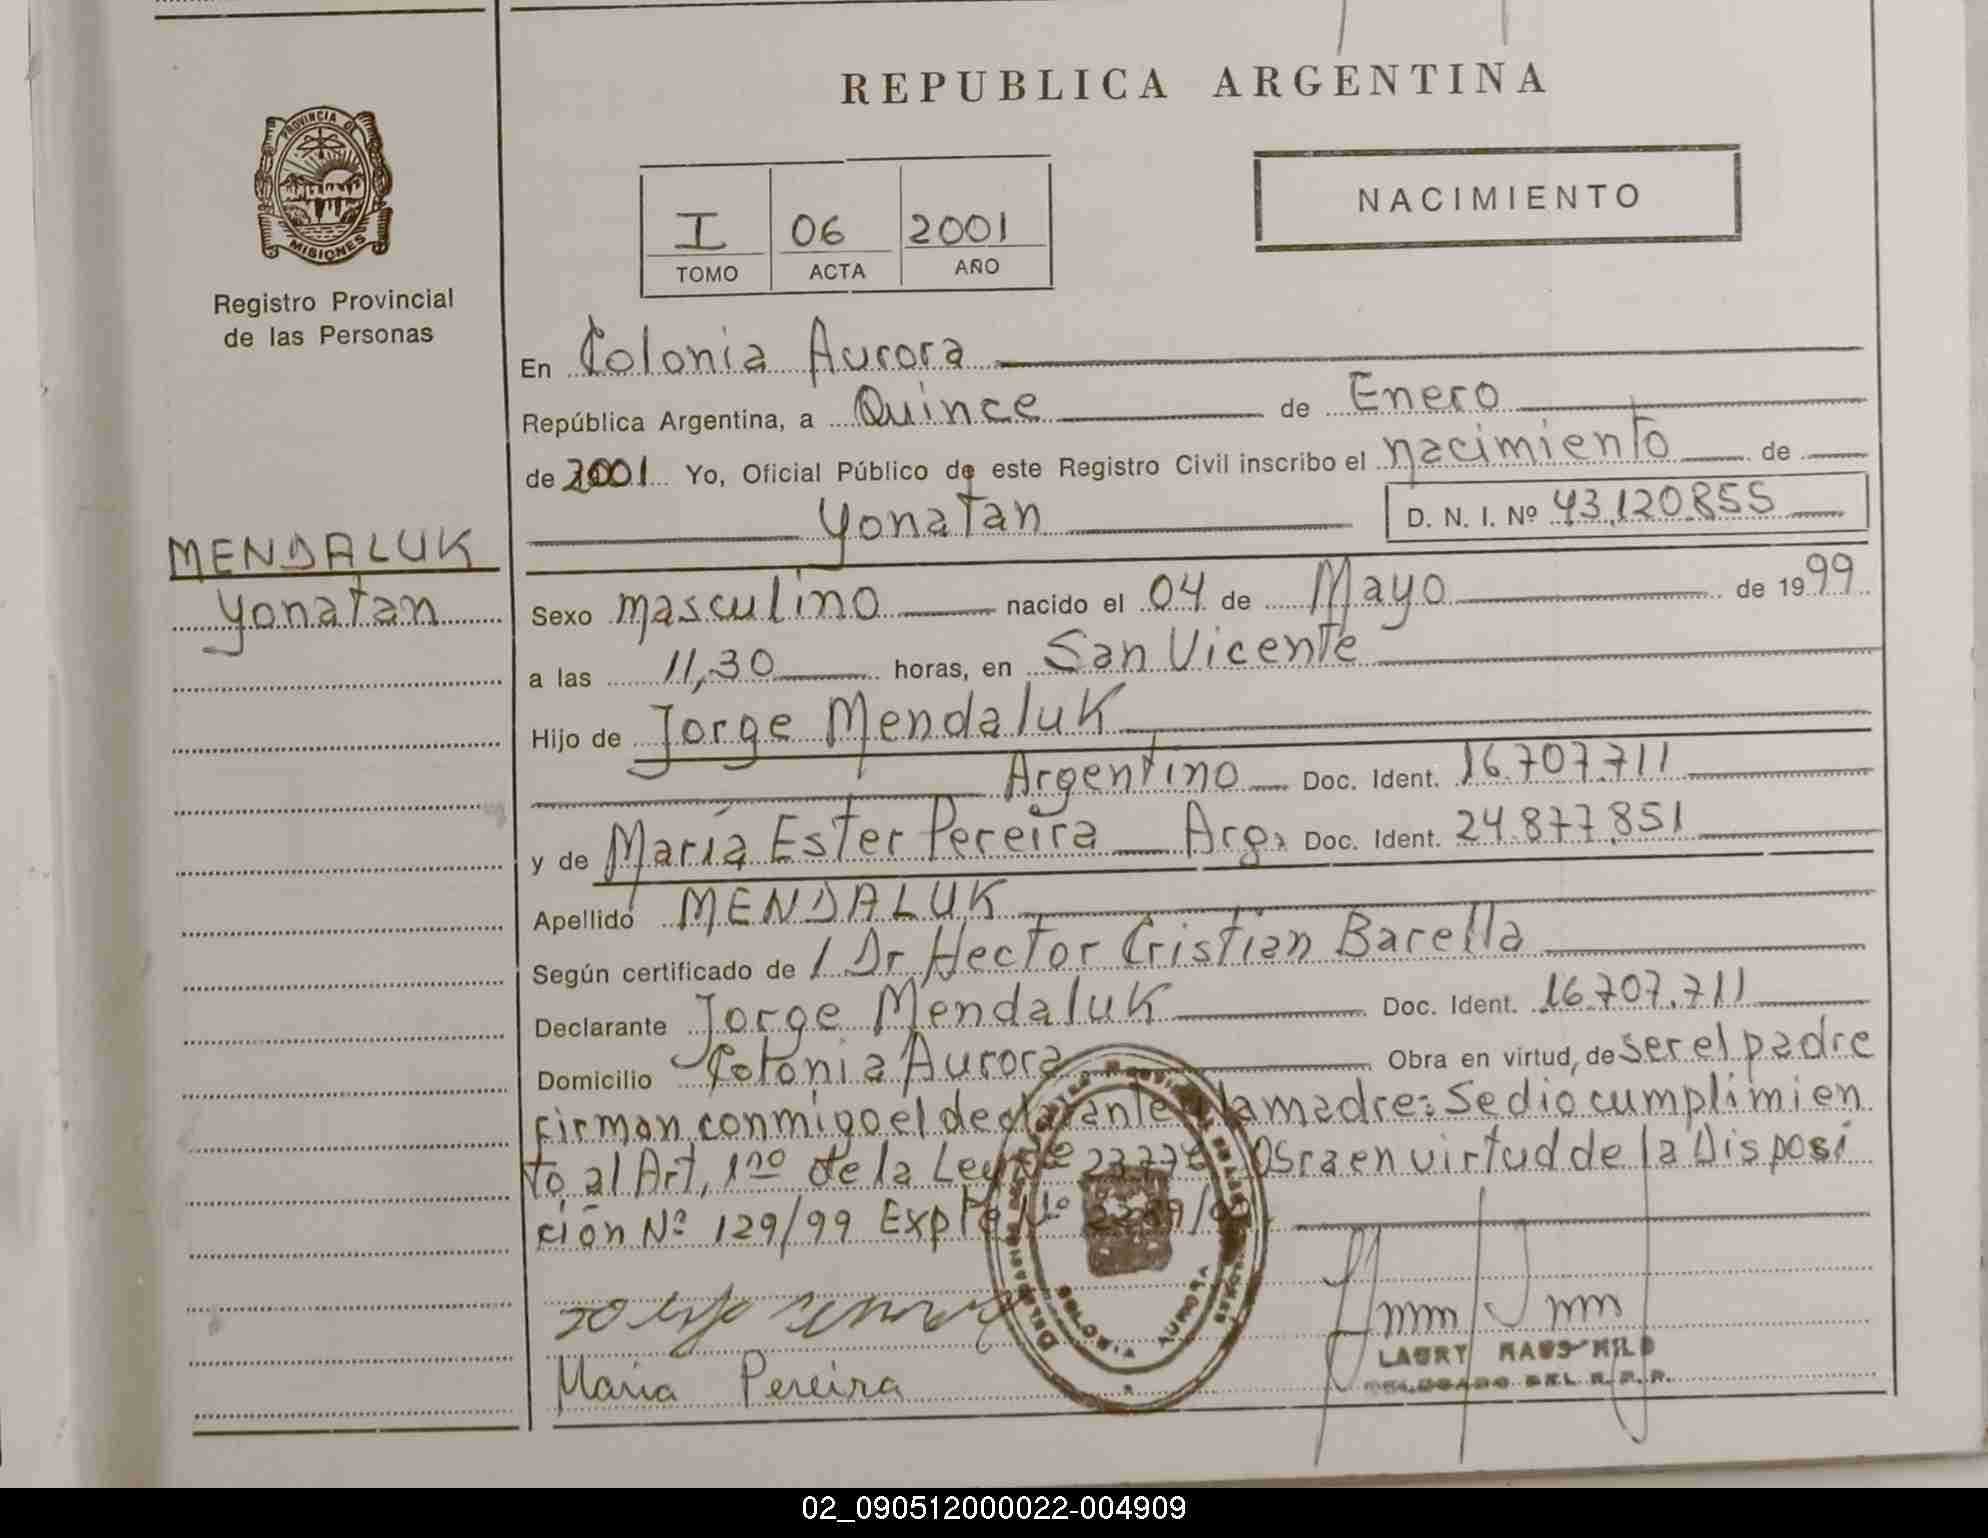 REPUBLICA ARGENTINA
PROVINCIA DE
MISIONES
Registro Provincial
de las Personas
I 06 2001
TOMO ACTA AÑO
NACIMIENTO
En Colonia Aurora
República Argentina, a Quince de Enero
de 2001 Yo, Oficial Público de este Registro Civil inscribo el nacimiento de
Yonatan D. N. I. Nº 43.120.855
MENDALUK
Yonatan
Sexo masculino nacido el 04 de Mayo de 1999
a las 11,30 horas, en San Vicente
Hijo de Jorge Mendaluk
Argentino Doc. Ident. 16.707.711
y de María Ester Pereira Arg. Doc. Ident. 24.877.851
Apellido MENDALUK
Según certificado de / Dr. Hector Cristian Barella
Declarante Jorge Mendaluk Doc. Ident. 16.707.711
Domicilio Colonia Aurora Obra en virtud, de ser el padre
firman conmigo el declarante la madre: Se dio cumplimien
to al Art, 1ro de la Ley Osra en virtud de la Disposi
ción Nº 129/99 Expte Nº
Maria Pereira
AURORA
LAURY
DELEGADO DEL R.P.P.
02_090512000022-004909